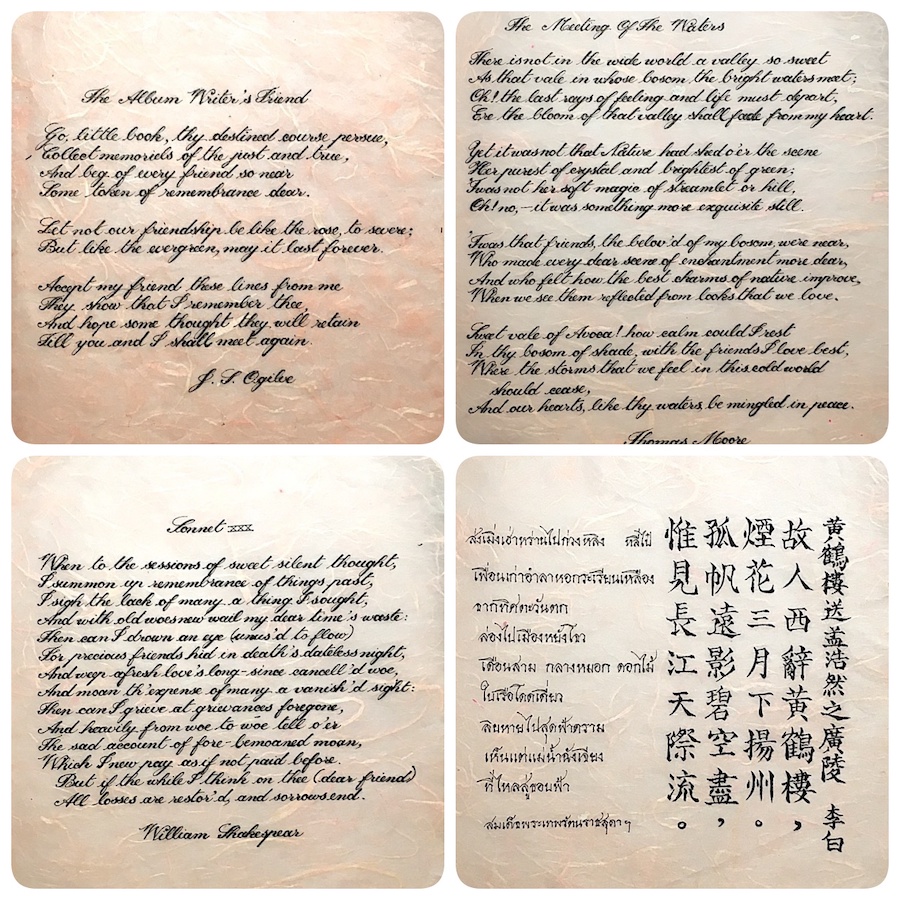 The Album Writer's Friend
Go, little book, thy destined course persue,
Collect memorials of the just and true,
And beg of every friend so near
Some token of remembrance dear.
Let not our friendship be like the rose, to severe;
But like the evergreen, may it last forever.
Accept my friend these lines from me
They show that I remember thee,
And hope some thought they will retain
Till you and I shall meet again.
J. S. Ogilve
The Meeting Of The Waters
There is not in the wide world a valley so sweet
As that vale in whose bosom the bright waters meet;
Oh! the last rays of feeling and life must depart,
Ere the bloom of that valley shall fade from my heart.
Yet it was not that Nature had shed o'er the scene
Her purest of crystal and brightest of green;
'Twas not her soft magic of streamlet or hill,
Oh! no, – it was something more exquisite still.
'Twas that friends, the belov'd of my bosom, were near,
Who made every dear scene of enchantment more dear,
And who felt how the best charms of nature improve,
When we see them reflected from looks that we love.
Sweet vale of Avoca! how calm could I rest
In thy bosom of shade, with the friends I love best,
Where the storms that we feel in this cold world
should cease,
And our hearts, like thy waters, be mingled in peace.
Thomas Moore
Sonnet XXX
When to the sessions of sweet silent thought,
I summon up remembrance of things past,
I sigh the lack of many a thing I sought,
And with old woes new wail my dear time's waste:
Then can I drown an eye (unus'd to flow)
For precious friends hid in death's dateless night,
And weep afresh love's long-since cancell'd woe,
And moan th'expense of many a vanish'd sight:
Then can I grieve at grievances foregone,
And heavily from woe to woe tell o'er
The sad account of fore-bemoaned moan,
Which I new pay as if not paid before.
But if the while I think on thee (dear friend)
All losses are restor'd, and sorrows end.
William Shakespear
ส่งเมิ่งเฮ่าหว่านไปกวงหลิง หลี่ไป๋
เพื่อนเก่าอำลาหอกระเรียนเหลือง
จากทิศตะวันตก
ล่องไปเมืองหยังโจว
เดือนสาม กลางหมอก ดอกไม้
ใบเรือโดดเดี่ยว
ลับหายไปสุดฟ้าคราม
เห็นแต่แม่น้ำฉังเจียง
ที่ไหลสู่ขอบฟ้า
สมเด็จพระเทพรัตนราชสุดาฯ
黃鶴樓送孟浩然之廣陵 李白
故人西辭黃鶴樓，
煙花三月下揚州。
孤帆遠影碧空盡，
惟見長江天際流。